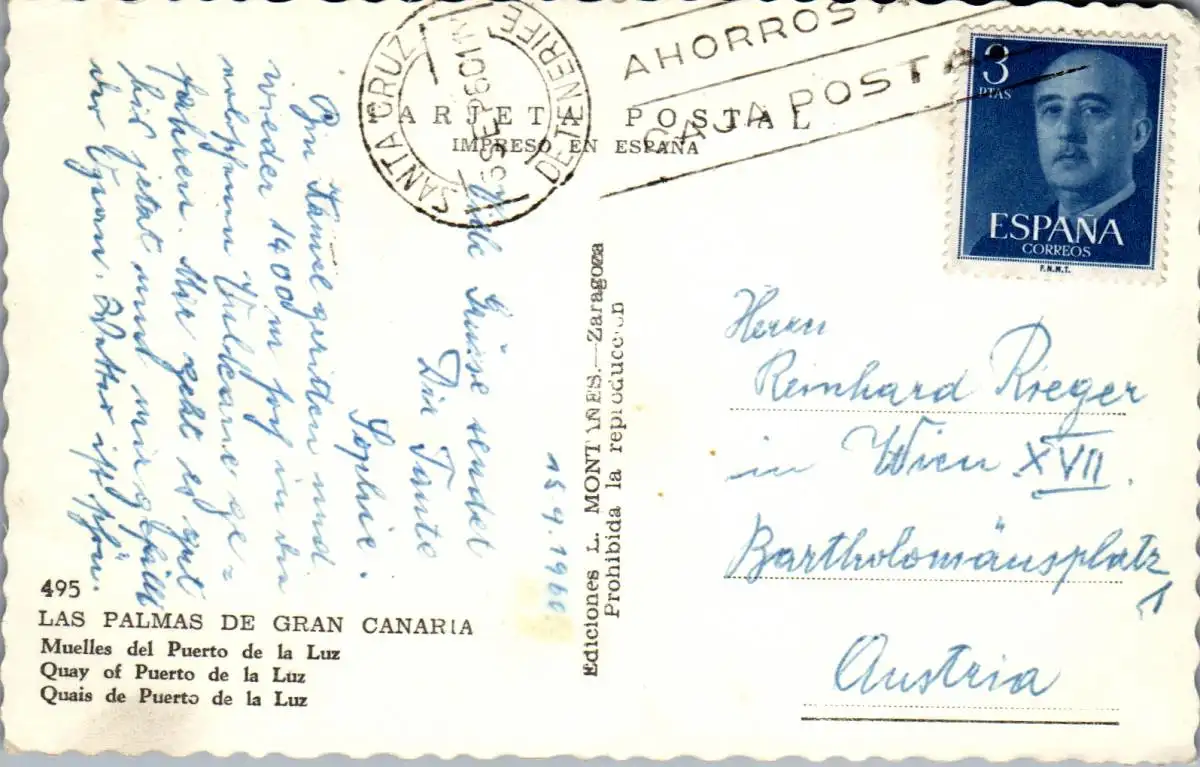 TARJETA POSTAL
IMPRESO EN ESPAÑA
SANTA CRUZ DE TENERIFE
SEP 60
AHORROS
CAJA POSTAL
3
PTAS
ESPAÑA
CORREOS
F.N.M.T.
15.9.1960
Bin Kamel geritten und
wieder 1400 m hoch in die
Vulcane ge=
fahren. Mir geht es gut
bis jetzt und mir gefällt
der Ozean. Wetter ist schön.
Viele Grüsse sendet
Dir Tante
Sophie.
Herrn
Reinhard Rieger
in Wien XVII.
Bartholomäusplatz
1
Austria
Ediciones L. MONTAÑES.—Zaragoza
Prohibida la reproducción
495
LAS PALMAS DE GRAN CANARIA
Muelles del Puerto de la Luz
Quay of Puerto de la Luz
Quais de Puerto de la Luz